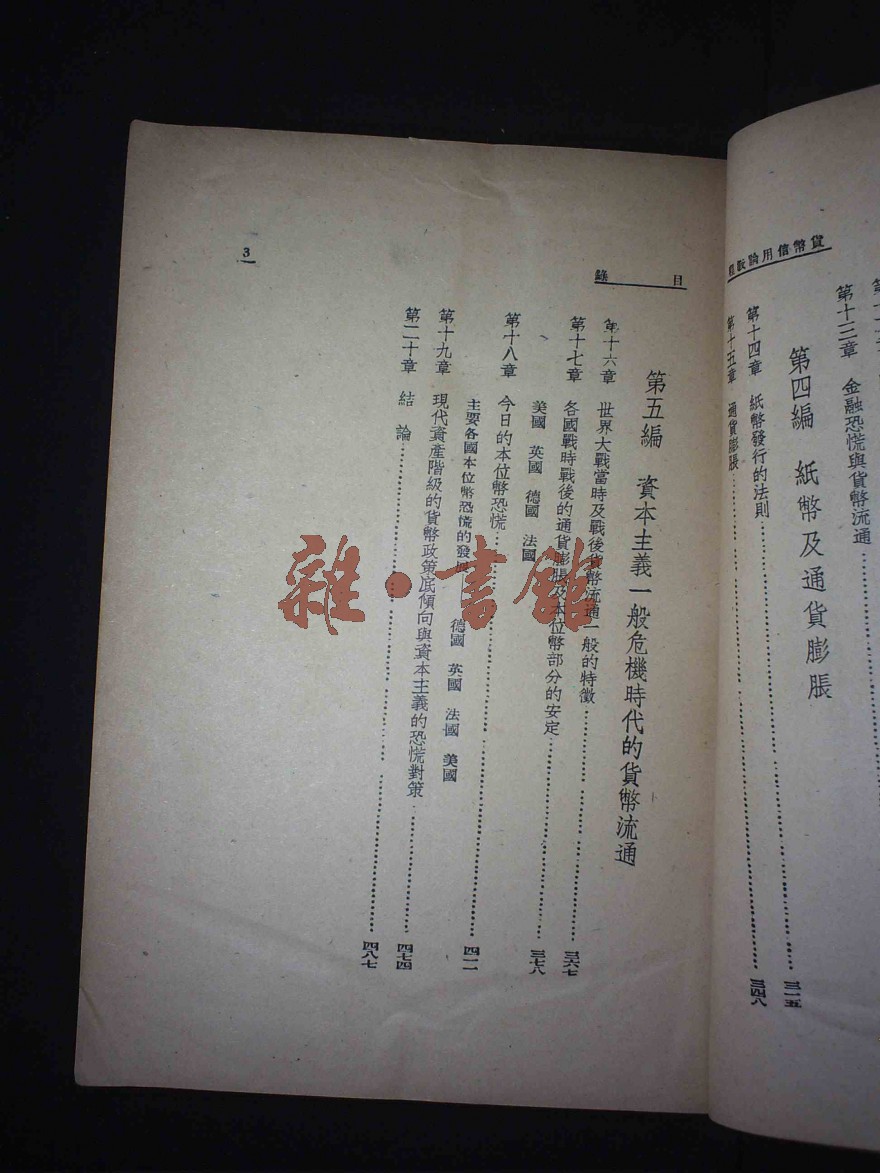 貨幣信用論教程
第十三章 金融恐慌與貨幣流通
第四編 紙幣及通貨膨脹
第十四章 紙幣發行的法則 三一五
第十五章 通貨膨脹 三四八
目錄
第五編 資本主義一般危機時代的貨幣流通
第十六章 世界大戰當時及戰後貨幣流通一般的特徵 三六七
第十七章 各國戰時戰後的通貨膨脹及本位幣部分的安定 三七八
美國 英國 德國 法國
第十八章 今日的本位幣恐慌 四二一
主要各國本位幣恐慌的發展 德國 英國 法國 美國
第十九章 現代資產階級的貨幣政策底傾向與資本主義的恐慌對策 四七四
第二十章 結論 四八七
3
雜·書館